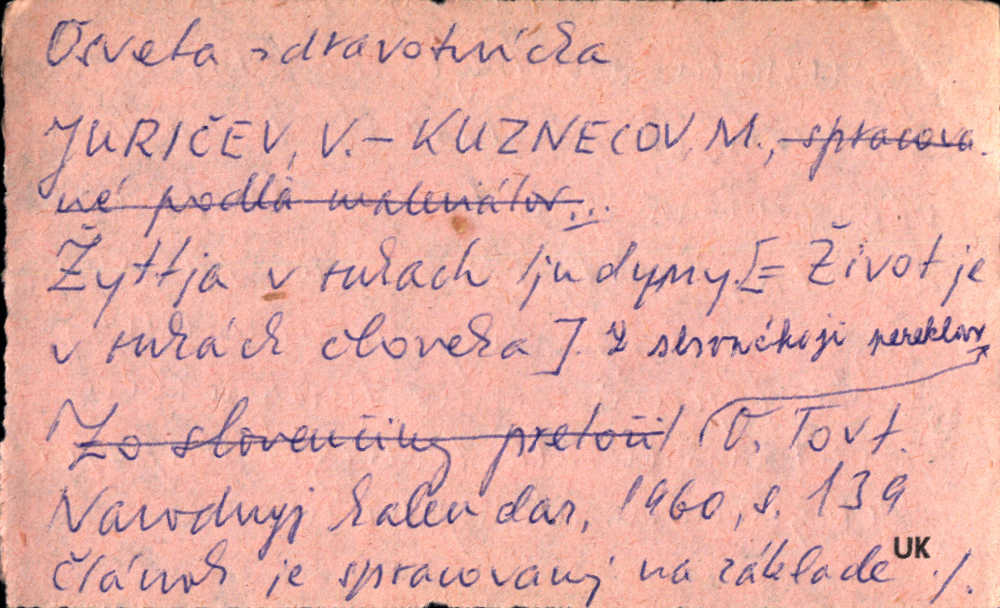 Osveta zdravotnícka
JURIČEV, V. – KUZNECOV, M., spracova-
né podľa materiálov...
Žyttja v rukach ljudyny. [= Život je
v rukách človeka]. Z slovac'koji pereklav
Zo slovenčiny preložil V. Tovt.
Narodnyj kalendar, 1960, s. 139
Článok je spracovaný na základe ./.
UK